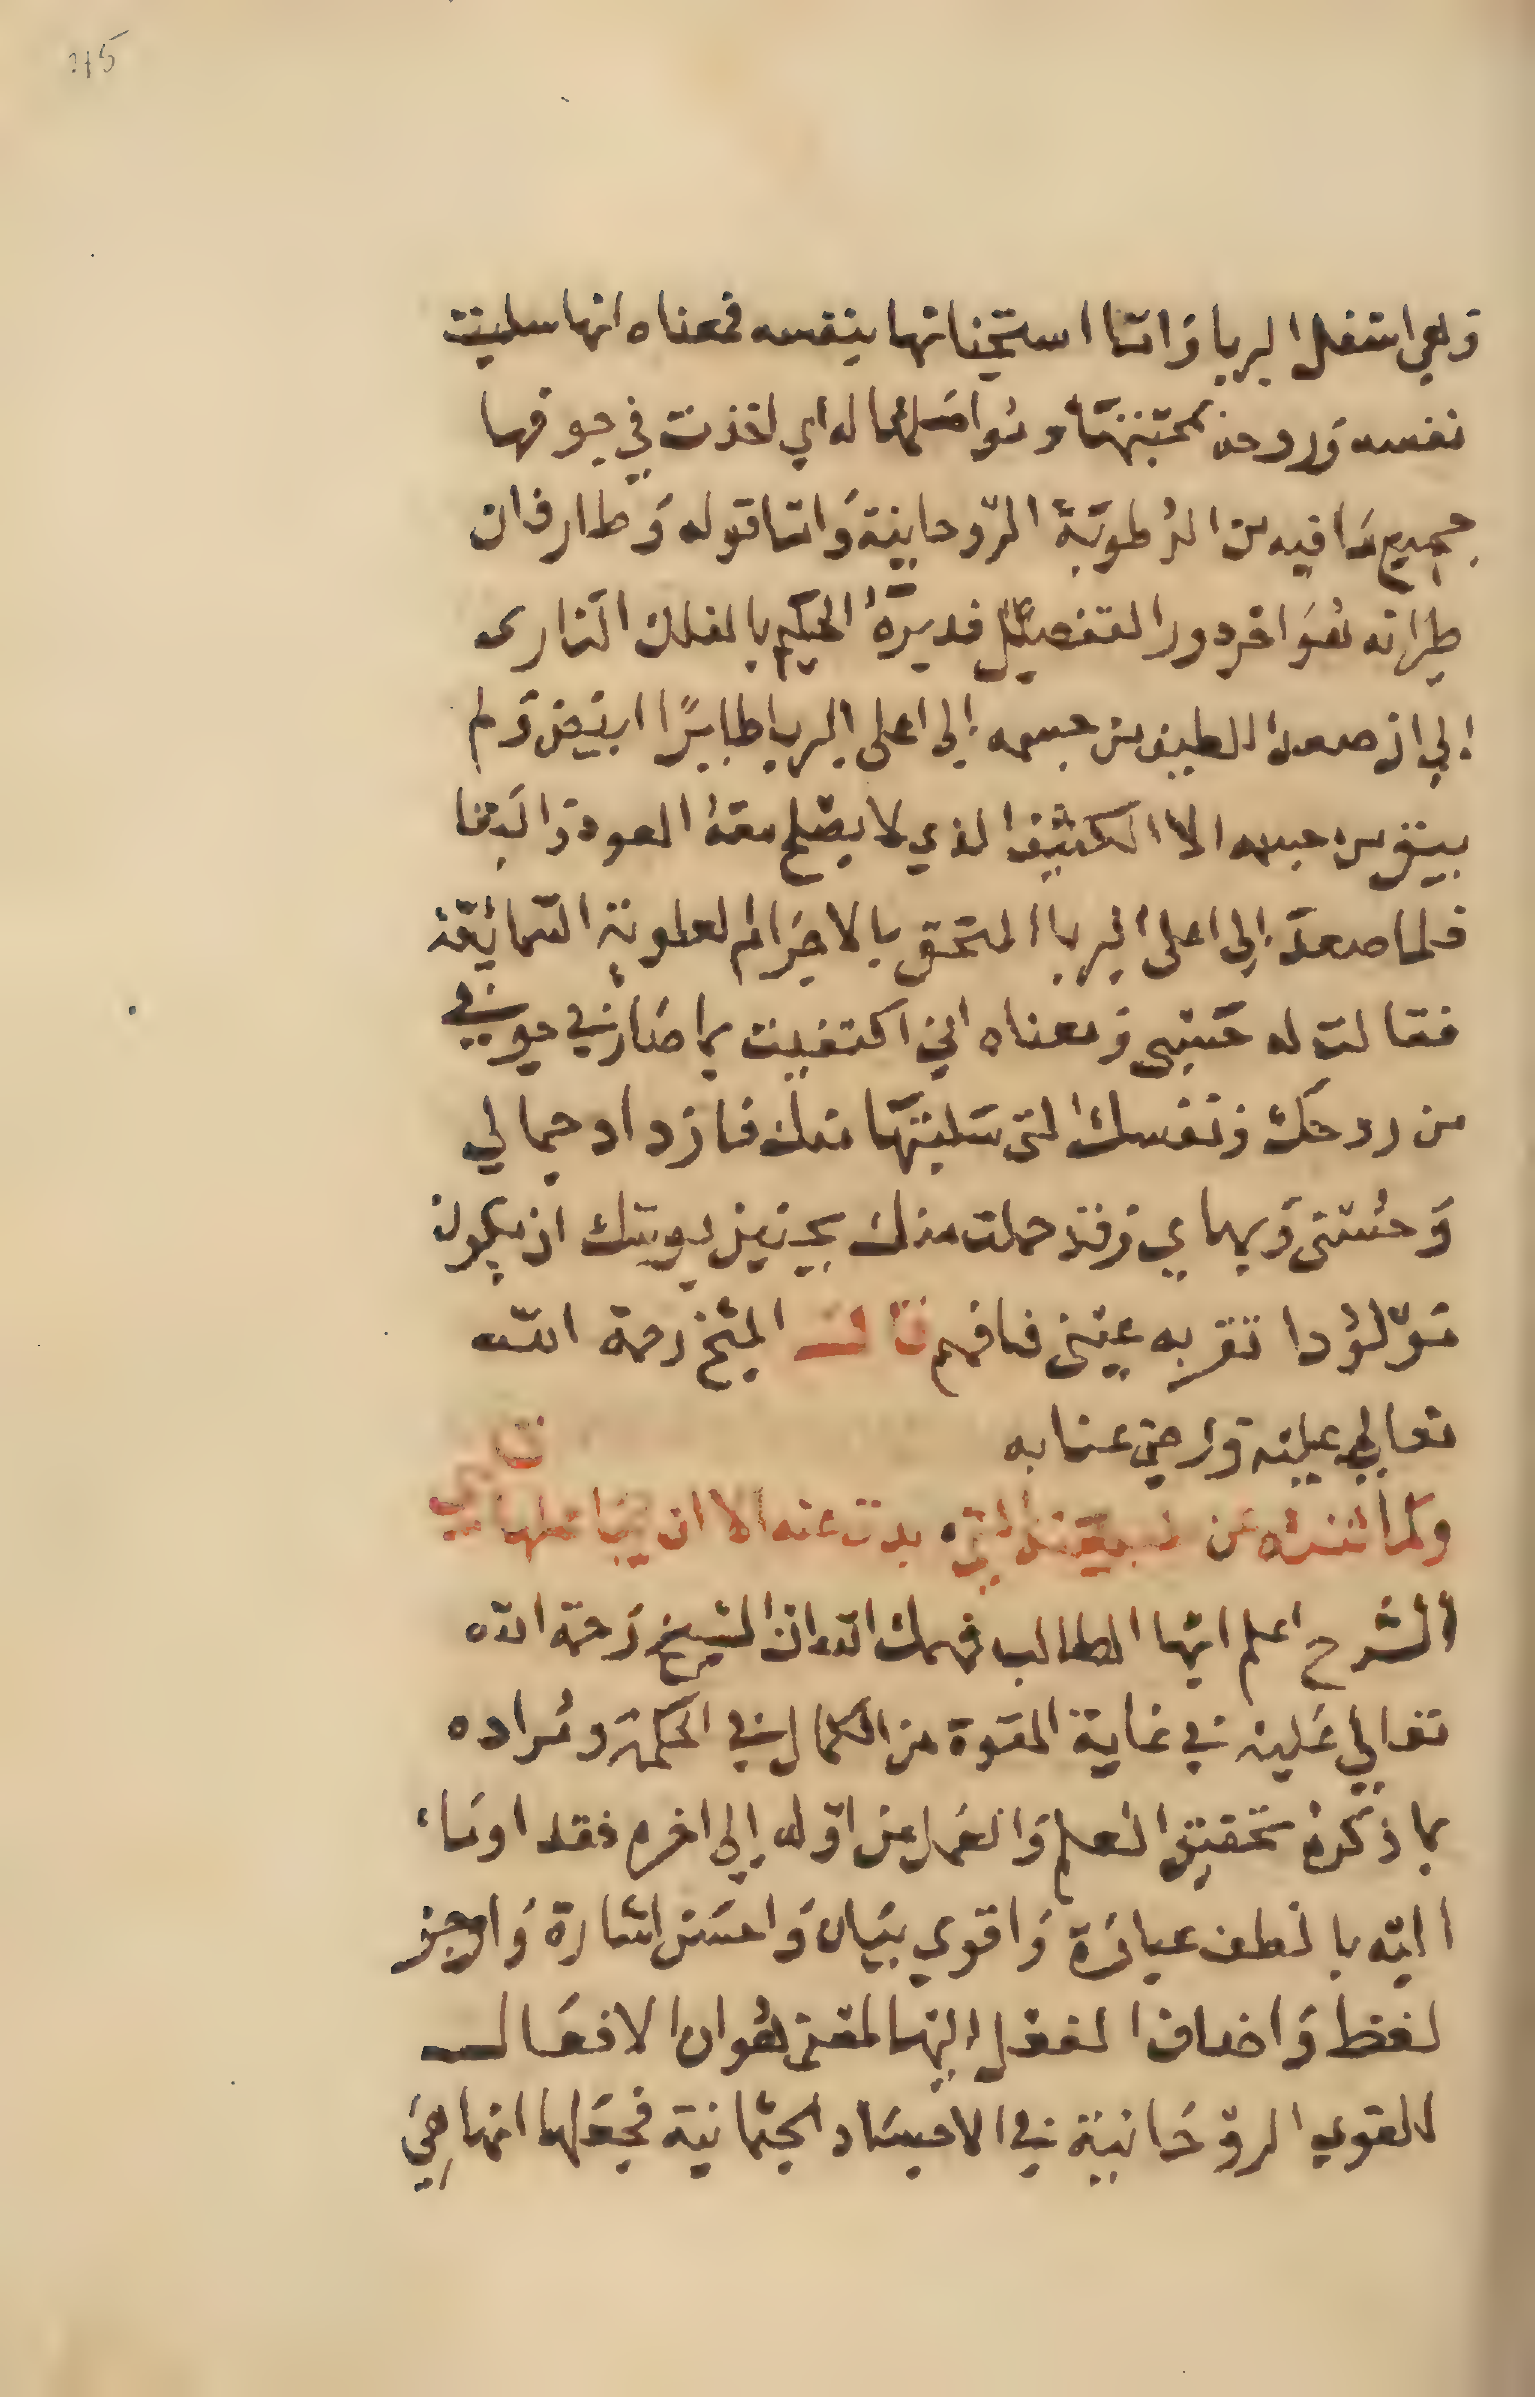 275
وهي اسفل البربا وَامّا استجنانها بنفسه فمعناه انها سلبت
نفسه وَروحه بمحبّتهَا وتواصلها له اي اخذت في جوفها
جميع مَا فيه من الرُطوبَة الرّوحانية وَامّا قوله وَطار فان
طيرانه هُوَ اخر دور التفصيل فديرهُ الحكيم بالفلك النارى
إلي ان صعد اللطيف من جسمه إلى اعلى البربا طايرًا ابيض وَلم
يبق من جسمه الا الكثيف الذي لا يصلح معهُ العودة وَالبقا
فلما صعدَ إلى اعلى البربا التحق بالاجرَام العلوية السّمائية
فقالت له حَسْبى وَمعناه اني اكتفيت بما صَار في جوفي
من روحك وَنفسك التى سَلبتهَا منك فازداد جمالي
وَحُسْنى وَبهاي وَقد حملت منك بجنين يوشك ان يكون
مَوْلوُدا تقر به عيْنى فافهم قال الشيخ رحمة اللّه
تعالي عليْه وَرضي عنا به
ولم اثنه عن بدت عنه الا ان
الشرح اعلم ايّها الطالب فهمك اللّه ان الشيخ رَحمة اللّه
تعالي عَليْه في غاية القوة من الكمال في الحكمة ومُراده
بما ذكرهُ تحقيق العلم وَالعَمل من اوّله إلى اخره فقد اومَاء
اليْه بالطف عبارَة وَاقوي بيَان وَاحسَن اشارة وَاوجز
لفظ وَاضاف الفعْل اليْها لمعنى هُو ان الافعَال
للقوي الروّحَانية في الاجسَاد الجثمانية فجَعَلها انها هِيَ